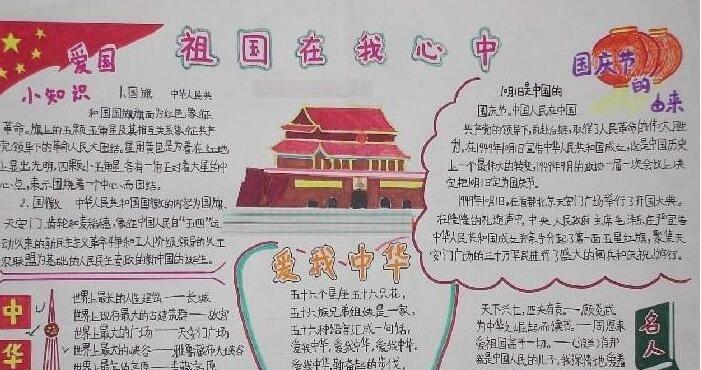 祖国在我心中
爱国
小知识
1.国旗 中华人民共
和国国旗旗面为红色,象征
革命。旗上的五颗五角星及其相互关系象征共产
党领导下的革命人民大团结。星用黄色是为着在红地
上显出光明,四颗小五角星各有一角正对着大星的中
心点,表示围绕着一个中心而团结。
2.国徽 中华人民共和国国徽的内容为国旗、
天安门、齿轮和麦稻穗,象征中国人民自“五四”运
动以来的新民主主义革命斗争和工人阶级领导的以工
农联盟为基础的人民民主专政的新中国的诞生。
国庆节
的
由来
10月1日是中国的
国庆节。中国人民在中国
共产党的领导下,前赴后继,取得了人民革命的伟大胜
利。在1949年10月1日宣告中华人民共和国成立,这是中国历史
上一个最伟大的转变。1949年9月的政协一届一次会议上决
定把10月1日定为国庆节。
1949年10月1日,在首都北京天安门广场举行了开国大典。
在隆隆的礼炮声中,中央人民政府主席毛泽东庄严宣告
中华人民共和国成立,并亲手升起了第一面五星红旗,聚集天
安门广场的三十万军民进行了盛大的阅兵和庆祝游行。
中
华
世界上最长的人性建筑——长城
世界上政存最大的古建筑群——故宫
世界上最大的广场——天安门广场
世界上最大的峡谷——雅鲁藏布大峡谷
爱我中华
五十六个星座五十六只花,
五十六族兄弟姐妹是一家,
五十六种语言汇成一句话,
爱我中华,爱我中华,爱我中华。
名
人
天下兴亡,匹夫有责。——顾炎武
为中华之崛起而读书。——周恩来
爱祖国高于一切。——肖邦
我是中国人民的儿子,我深情地爱着